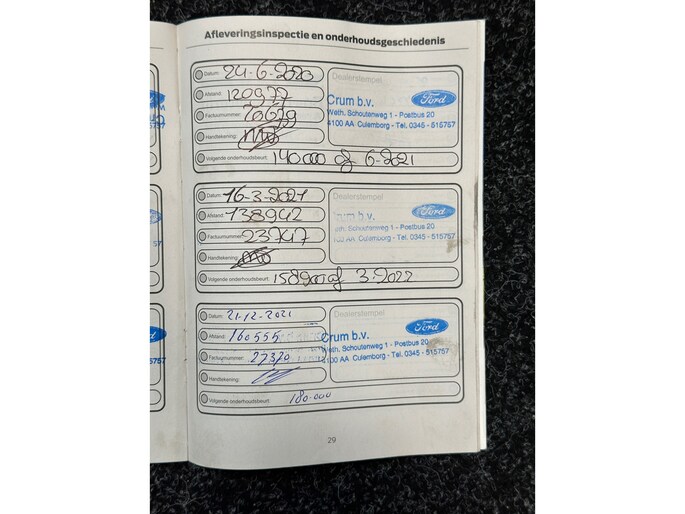 Afleveringsinspectie en onderhoudsgeschiedenis
Datum: 24-6-2020
Dealerstempel
Afstand: 120977
Crum b.v.
Ford
Weth. Schoutenweg 1 - Postbus 20
Factuurnummer: 20679
4100 AA Culemborg - Tel. 0345 - 515757
Handtekening:
Volgende onderhoudsbeurt: 140000 of 6-2021
Datum: 16-3-2021
Dealerstempel
Afstand: 138942
Crum b.v.
Ford
Weth. Schoutenweg 1 - Postbus 20
Factuurnummer: 23747
4100 AA Culemborg - Tel. 0345 - 515757
Handtekening:
Volgende onderhoudsbeurt: 158900 of 3-2022
Datum: 21-12-2021
Dealerstempel
Afstand: 160555
Crum b.v.
Ford
Weth. Schoutenweg 1 - Postbus 20
Factuurnummer: 27370
4100 AA Culemborg - Tel. 0345 - 515757
Handtekening:
Volgende onderhoudsbeurt: 180.000
29